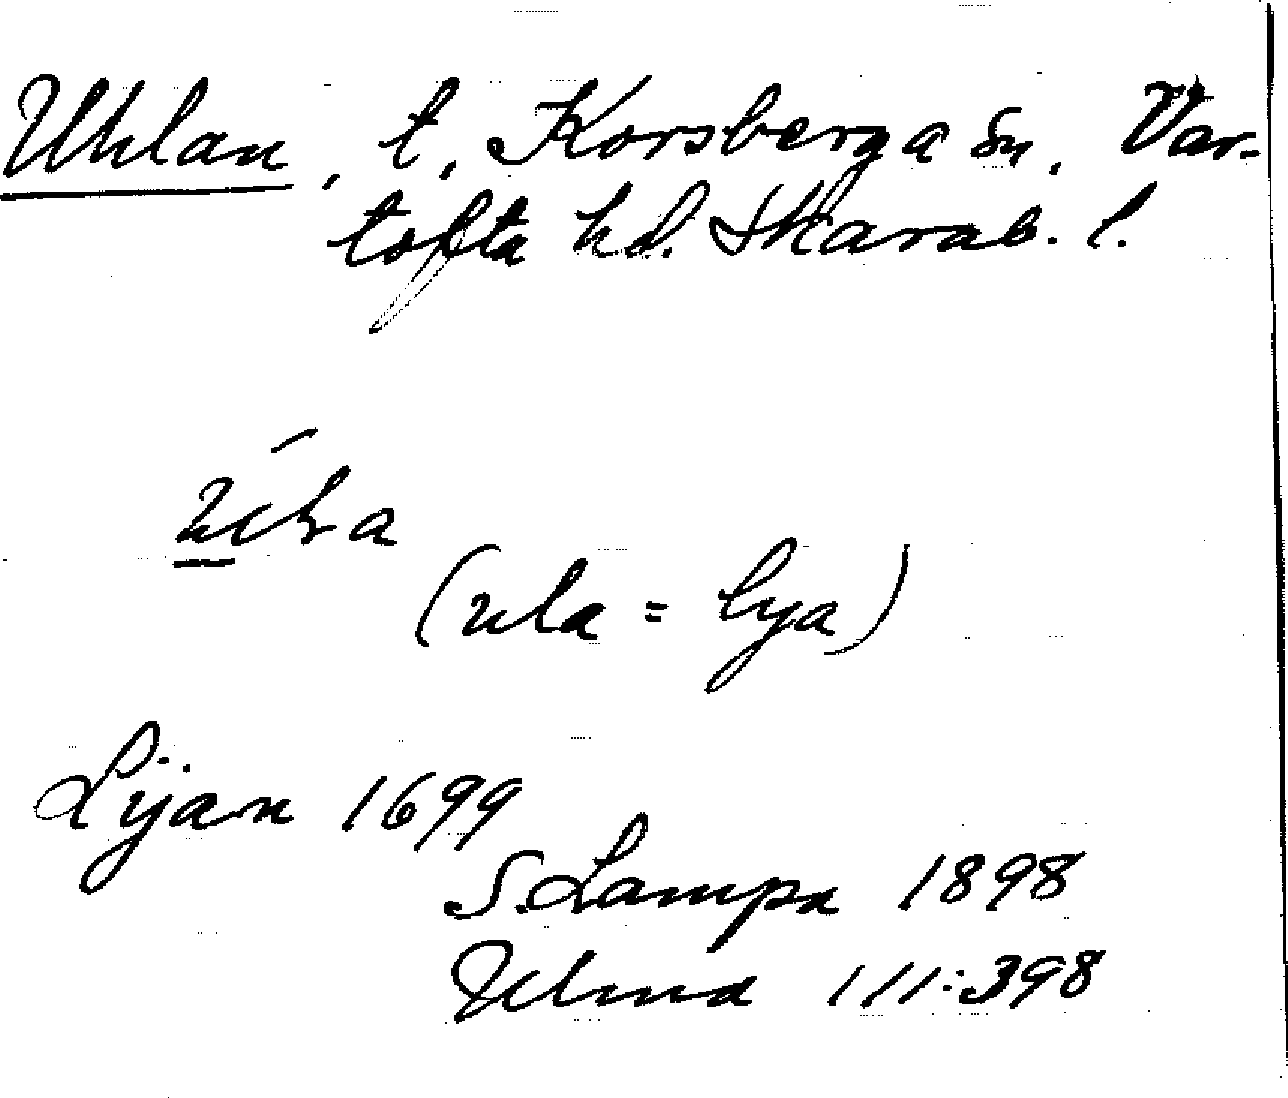 Uhlan, t, Korsberga sn, Var-
tofta hd. Skarab. l.
(ula = lya)
Lÿan 1699
S. Lampa 1898
Ulma 111:398